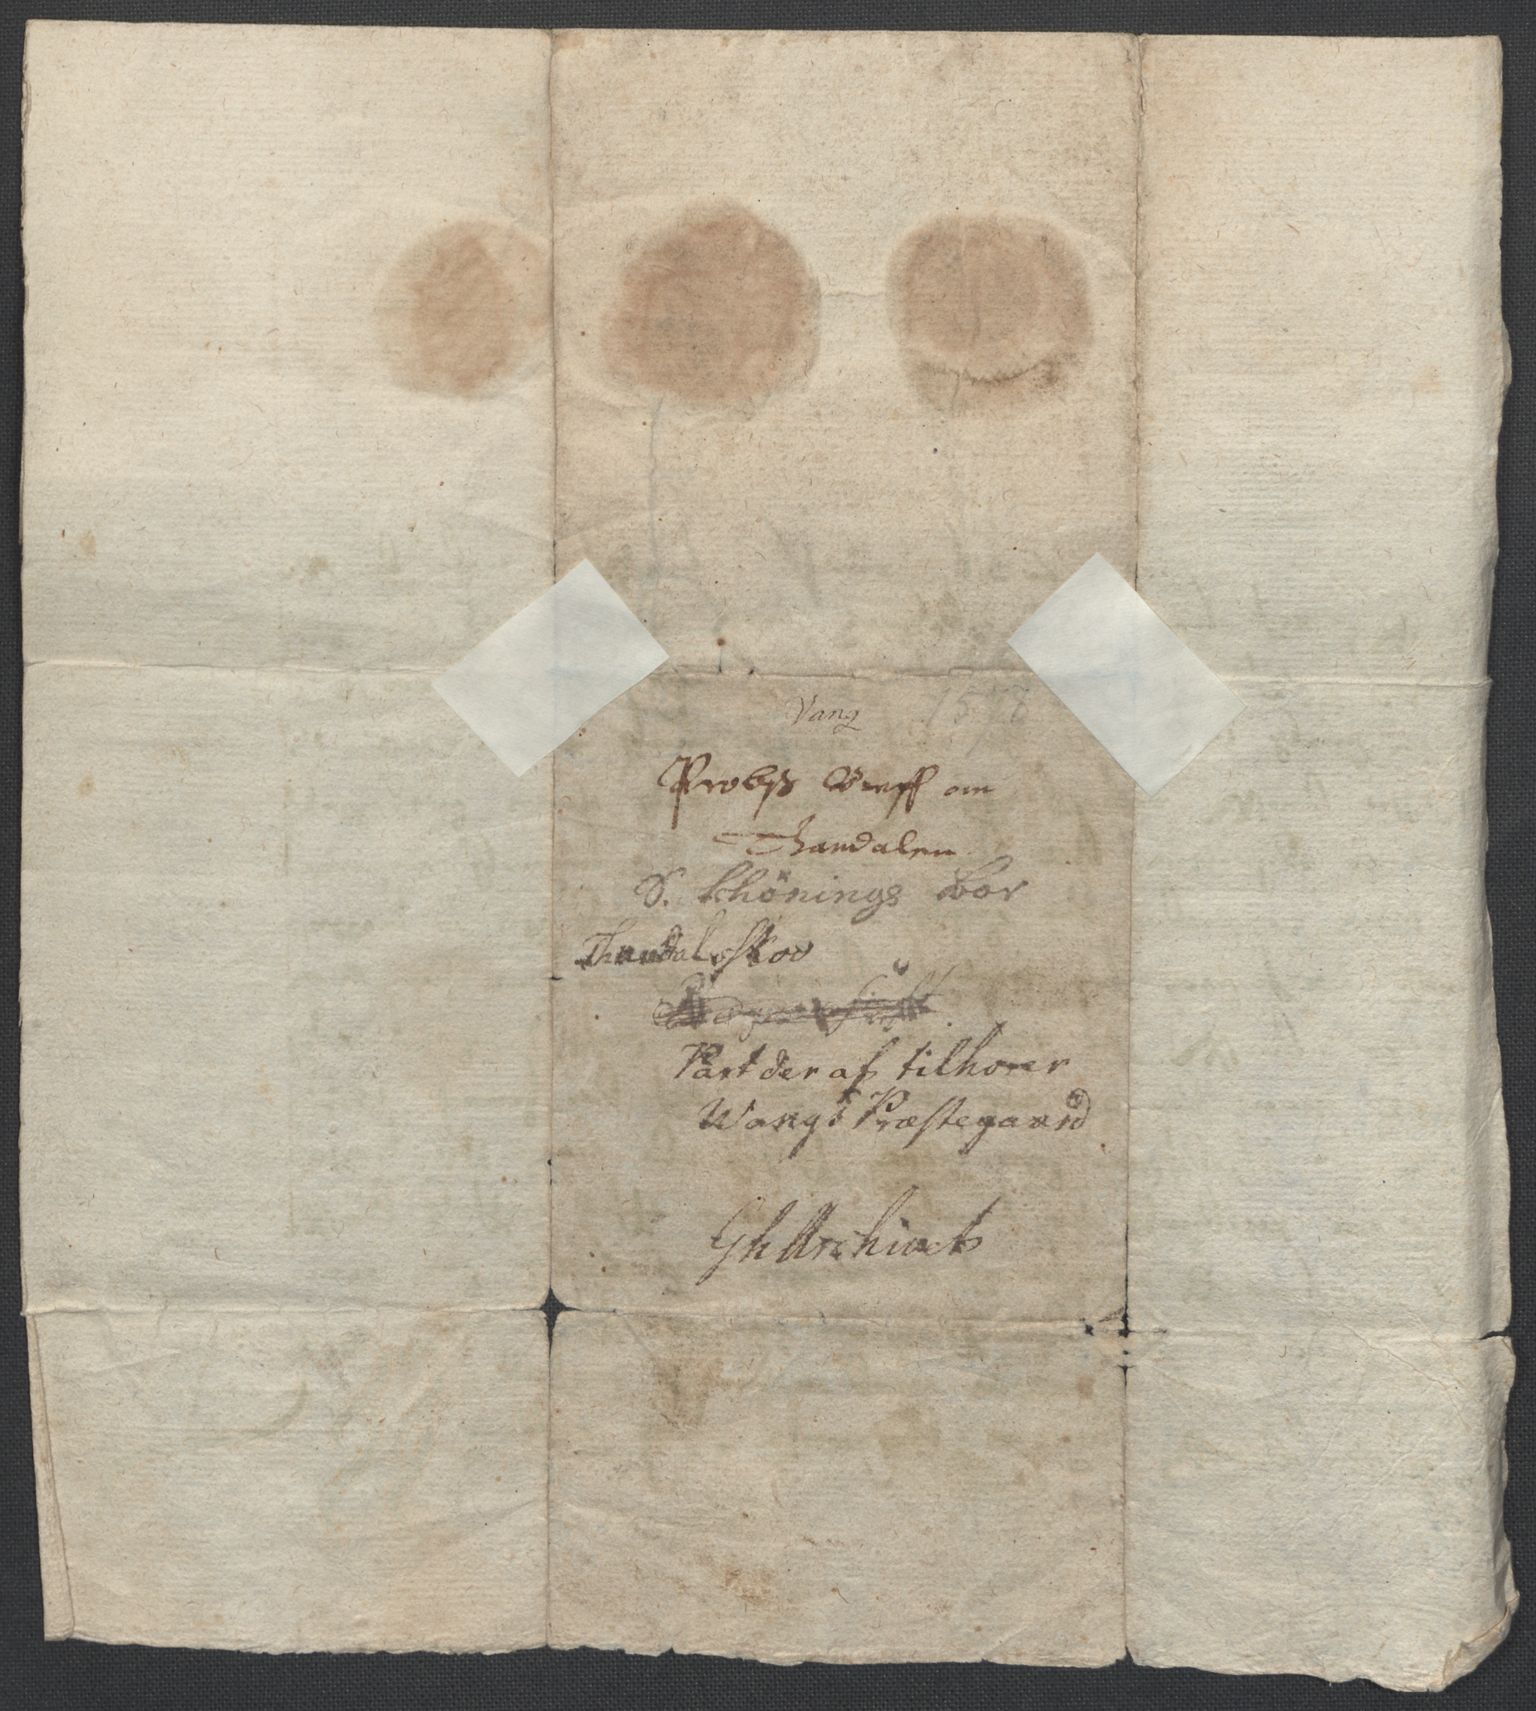 Vang 1578
Probst breff om
Thandalen
S. Schönings bor
Thandalsskov
Part der af tilhører
Wangs Præstegaard
Gl. Archivet